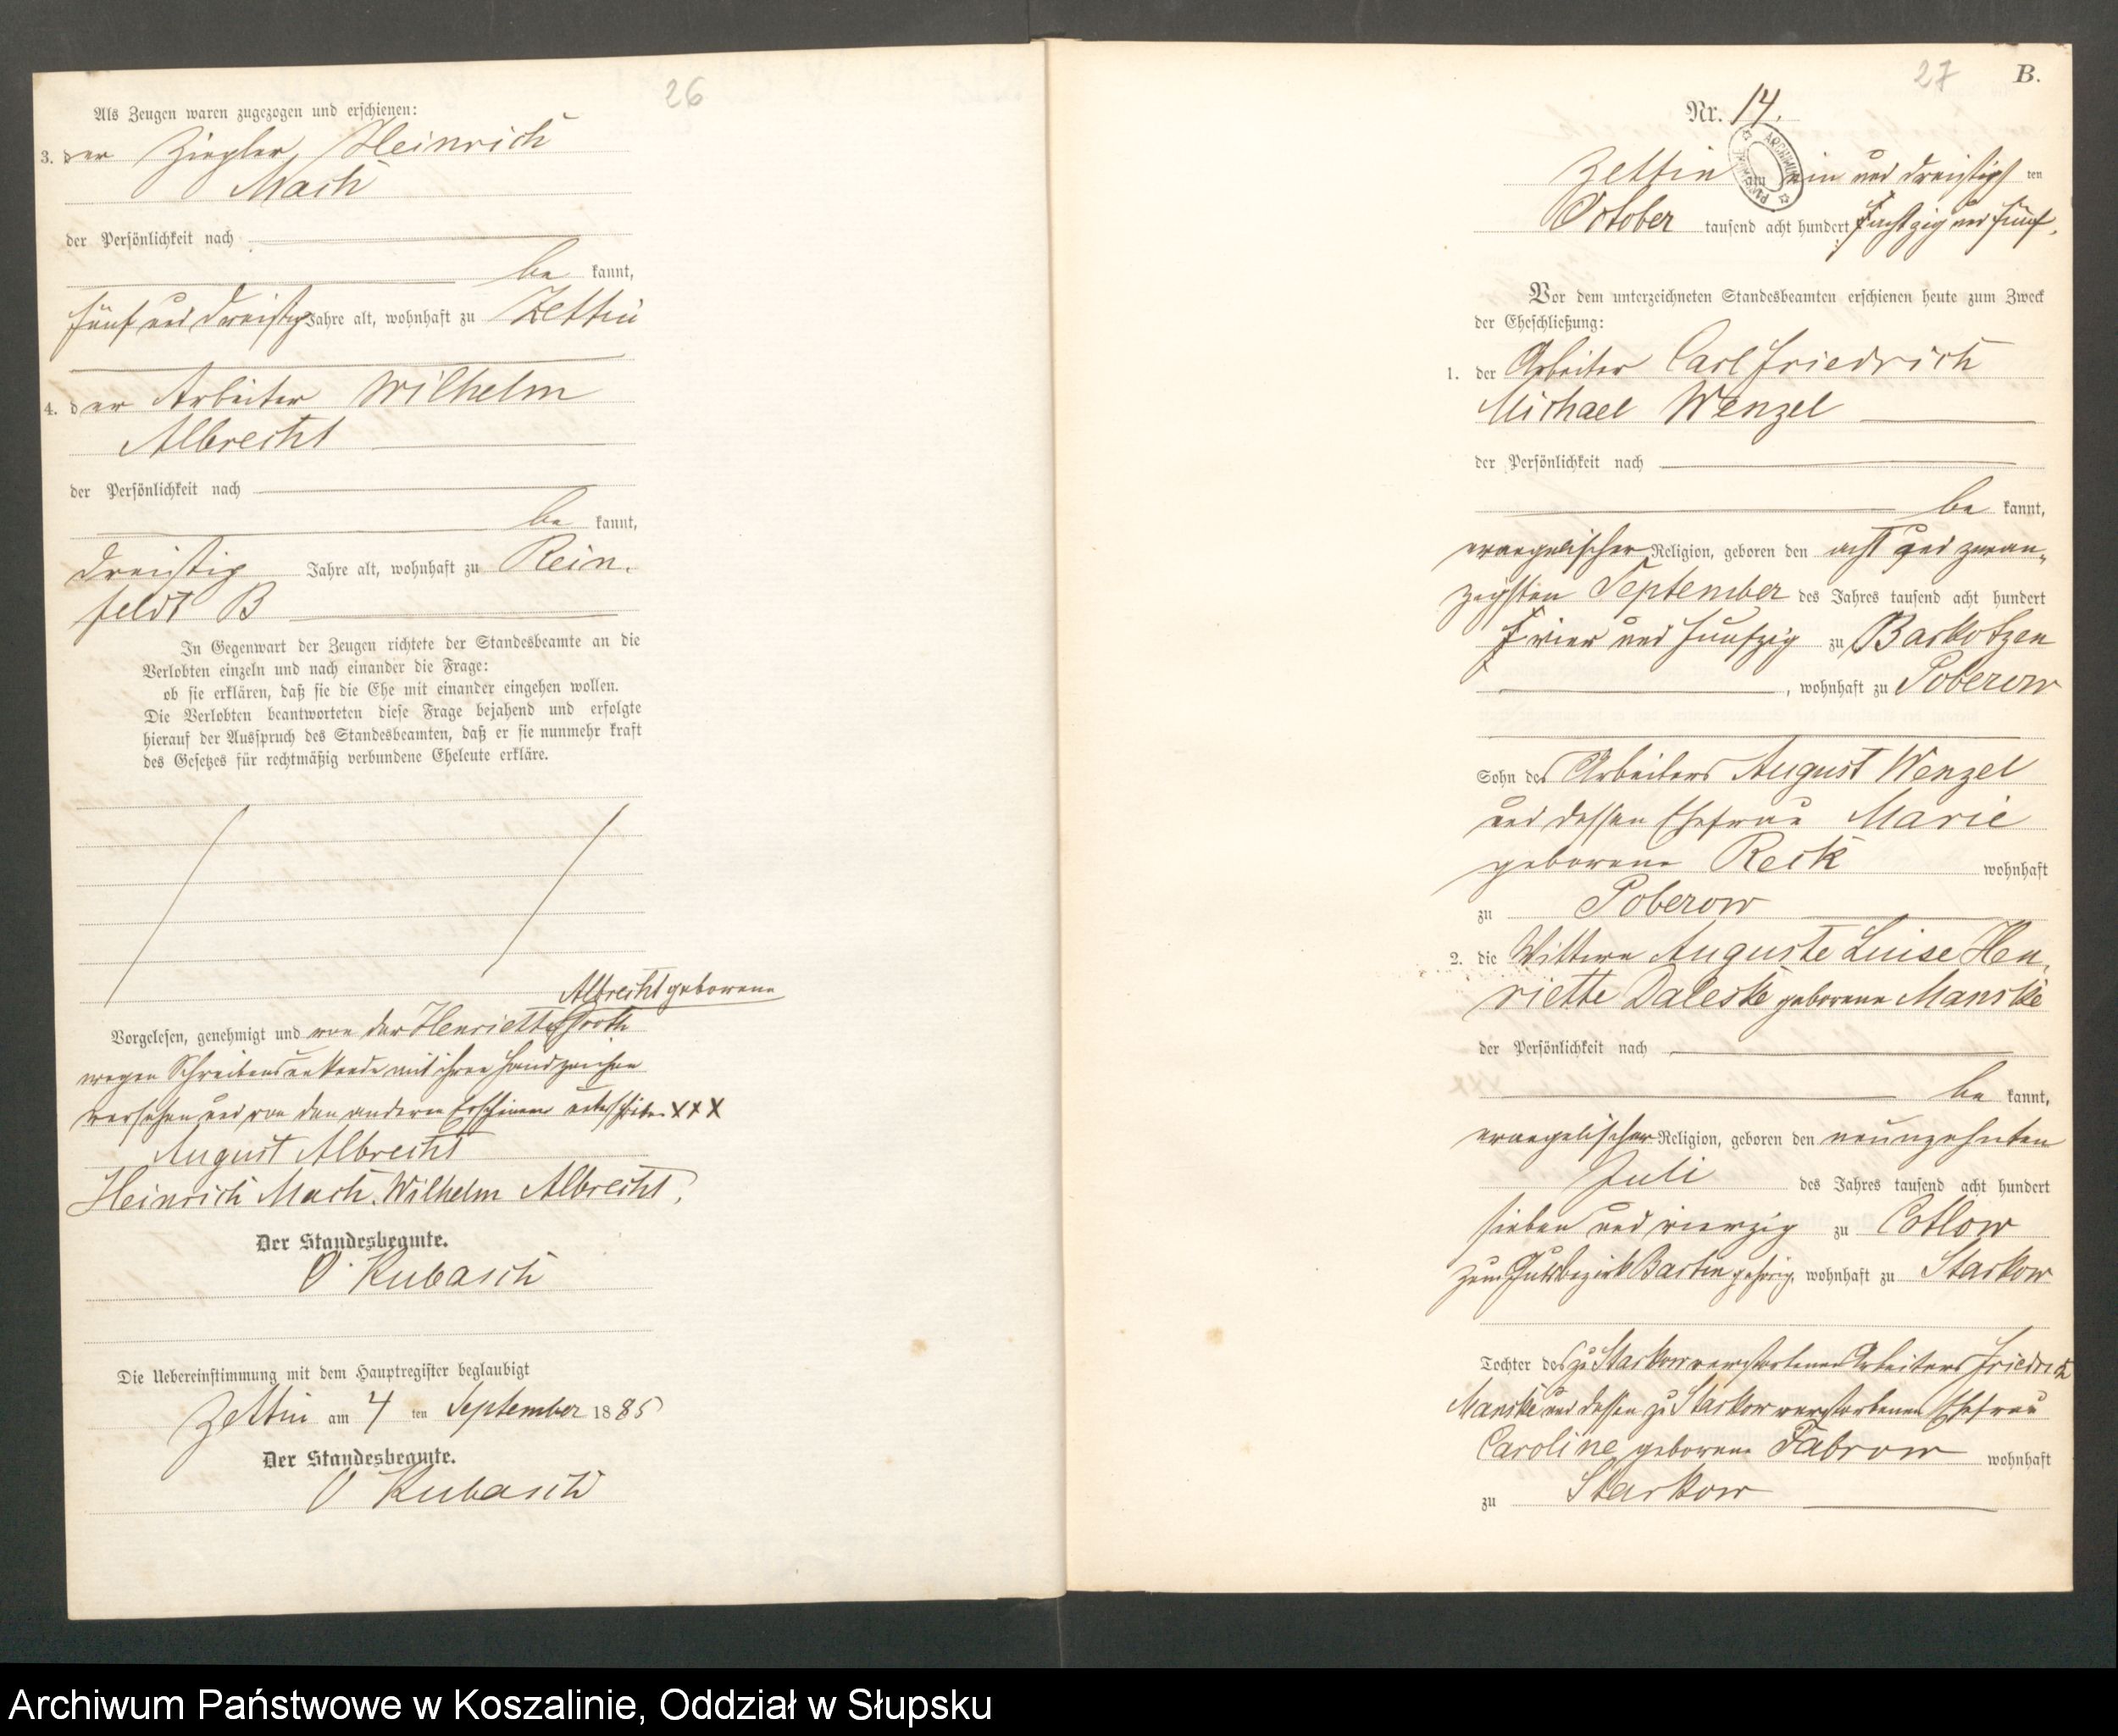 26
Als Zeugen waren zugezogen und erschienen:
3. der Ziegler Heinrich
Mach
der Persönlichkeit nach
be kannt,
fünf und dreißig Jahre alt, wohnhaft zu Zettin
4. der Arbeiter Wilhelm
Albrecht
der Persönlichkeit nach
be kannt,
dreißig Jahre alt, wohnhaft zu Rein-
feldt B
In Gegenwart der Zeugen richtete der Standesbeamte an die
Verlobten einzeln und nach einander die Frage:
ob sie erklären, daß sie die Ehe mit einander eingehen wollen.
Die Verlobten beantworteten diese Frage bejahend und erfolgte
hierauf der Ausspruch des Standesbeamten, daß er sie nunmehr kraft
des Gesetzes für rechtmäßig verbundene Eheleute erkläre.
Albrecht geborene
Vorgelesen, genehmigt und von der Henriette
wegen Schreibensunkunde mit ihrem Handzeichen
versehen und von den anderen Erschienenen unterschrieben XXX
August Albrecht
Heinrich Mach. Wilhelm Albrecht.
Der Standesbeamte.
O. Kubasch
Die Uebereinstimmung mit dem Hauptregister beglaubigt
Zettin am 4 ten September 1885
Der Standesbeamte.
O Kubasch
27
B.
Nr. 14.
Zettin am ein und dreißigs ten
October tausend acht hundert achtzig und fünf.
Vor dem unterzeichneten Standesbeamten erschienen heute zum Zweck
der Eheschließung:
1. der Arbeiter Carl Friedrich
Michael Wenzel
der Persönlichkeit nach
be kannt,
evangelischer Religion, geboren den acht und zwan-
zigsten September des Jahres tausend acht hundert
vier und fünfzig zu Barkotzen
, wohnhaft zu Poberow
Sohn des Arbeiters August Wenzel
und dessen Ehefrau Marie
geborene Reck wohnhaft
zu Poberow
2. die Wittwe Auguste Luise Hen-
riette Daleske geborene Manske
der Persönlichkeit nach
be kannt,
evangelischer Religion, geboren den neunzehnten
Juli des Jahres tausend acht hundert
sieben und vierzig zu Cotlow
zum Gutsbezirk Bartin gehörig, wohnhaft zu Starkow
Tochter des zu Starkow verstorbenen Arbeiters Friedrich
Manske und dessen zu Starkow verstorbenen Ehefrau
Caroline geborene Fabrow wohnhaft
zu Starkow
Archiwum Państwowe w Koszalinie, Oddział w Słupsku